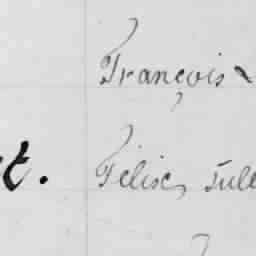 François
t. Félix, Jule